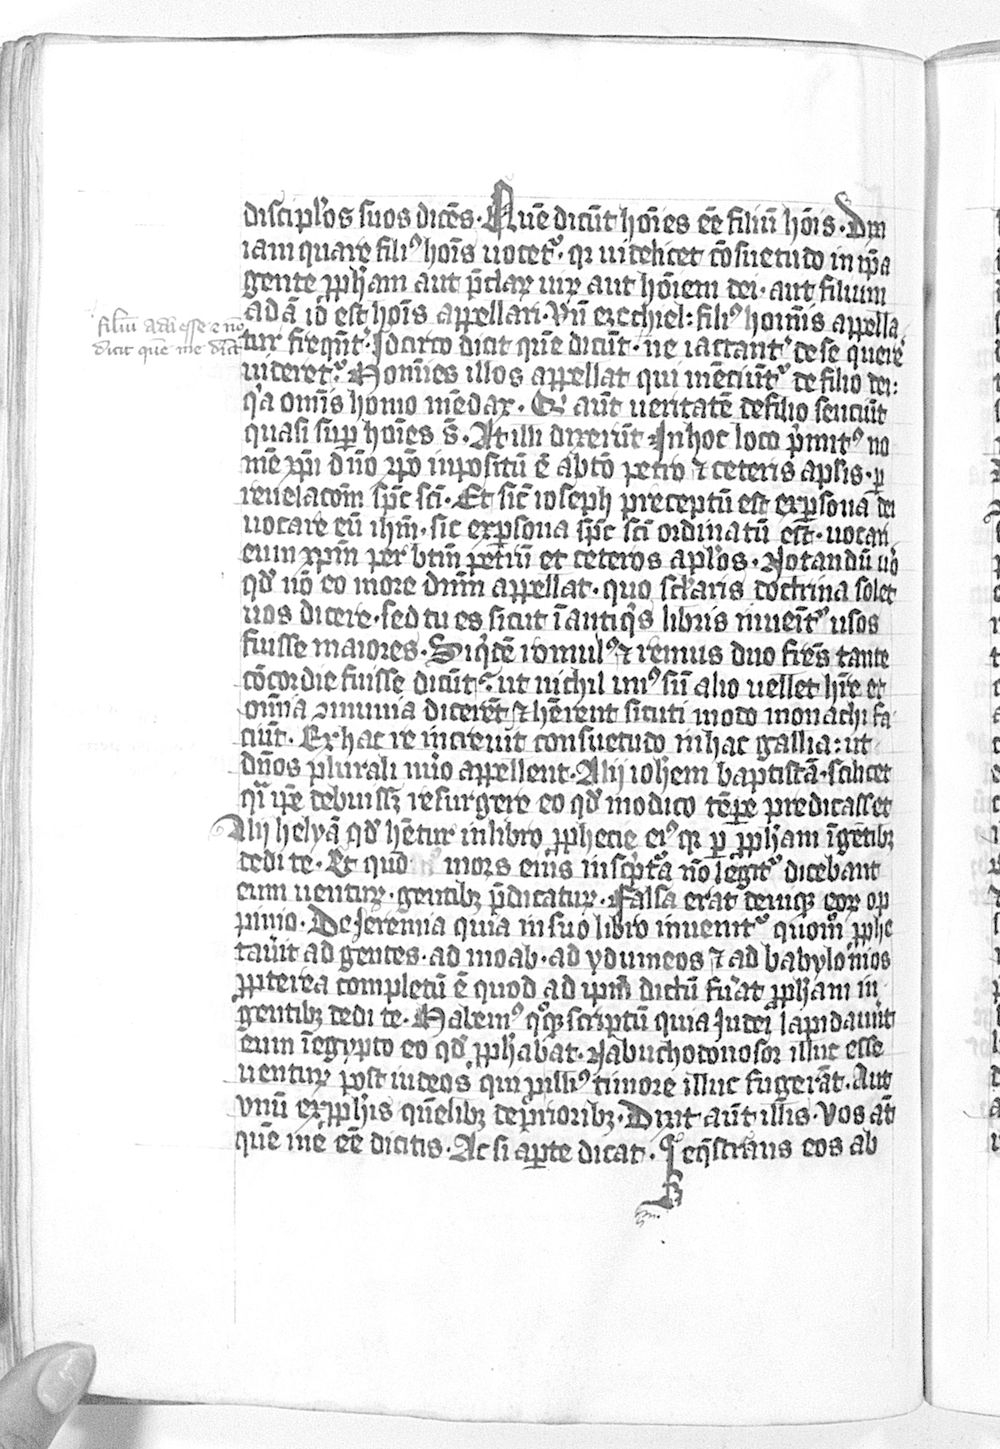 discipl'os suos dicēs · Quē dicūt hoīes ēē filiū hoīs · Dm
iam quare fili⁹ hoīs uocet᷑ · qr uidelicet cōsuetudo in ip̄a
gente ꝓph̄am aut p̄claꝝ uiꝝ aut hoīem dei · aut filium
adā id est hoīs appellari · Vn̄ ezechiel : fili⁹ hominis appella
filiū adā esse
dicit quē me dicit
tur freqn̄t᷑ · Idcirco dicit quē dicūt · ne iactant᷑ de se quere᷑
uideret᷑ · Homines illos appellat qui mēciūt᷑ de filio dei :
q'a omīs homo mēdax · Q' aūt ueritatē de filio senciūt
quasi sup̱ hoīes s̄ · At illi dixerūt · In hoc loco p'mit⁹ no
mē xp̄i dn̄o xp̄o inpositū ē abtō petro ⁊ ceteris apl'is · p̱
reuelacōm sp̄c sci · Et sic ioseph preceptū est exp̱sona dei
uocare eū ih̄m · sic exp̱sona sp̄c sci ordinatū est · uocari
eum xp̄m per btm̄ petrū et ceteros apl'os · Notandū u'o
qd̄ nō eo more dn̄m appellat · quo scl'aris doctrina solet
uos dicere · sed tu es sicut ī antiq's libris inueīt᷑ usos
fuisse maiores · Siq'dē romul⁹ ⁊ remus duo frēs tante
cōcordie fuisse dicūt᷑ · ut nichil un⁹ sn̄ alio uellet hr̄e et
omīa ꝯmunia dicerēt ⁊ hēreut sicuti modo monachi fa
ciūt · Ex hac re inoleuit consuetudo in hac gallia : ut
dn̄os plurali nu'o appellent · Alij ioh̄em baptistā · scilicet
qi ip̄e debuissꝫ resurgere eo qd̄ modico tēp̱e predicasset
Alij helyā qd̄ hētur in libro ꝓphecie ei⁹ qr p̱ ꝓph̄am ī gētibꝫ
dedi te · Et quod mors eius in sc'ptā nō legit᷑ dicebant
eum uentuꝝ · gentibꝫ p̄dicatur · Falsa erat deniqꝫ eoꝝ op
pinio · De Jeremia quia in suo libro inuenit᷑ quom̊ ꝓphe
tauit ad gentes · ad moab · ad ydumeos ⁊ ad babylonios
ꝓpterea completū ē quod ad ip̄m dictū fu'at ꝓph̄am in
gentibꝫ dedi te · Habem⁹ q°qꝫ scriptū quia Judei lapidauūt
eum ī egypto eo qd̄ ꝓph̄abat · Nabuchodonosor illuc esse
uentuꝝ post iudeos qui p̱ illi⁹ timore illuc fugerāt · Aut
vnū ex ꝓph̄is quēlibꝫ de p̱rioribꝫ · Dixit aūt illis · Vos aūt
quē me ēē dicitis · Ac si ap̱te dicat · Seq̄strans eos ab